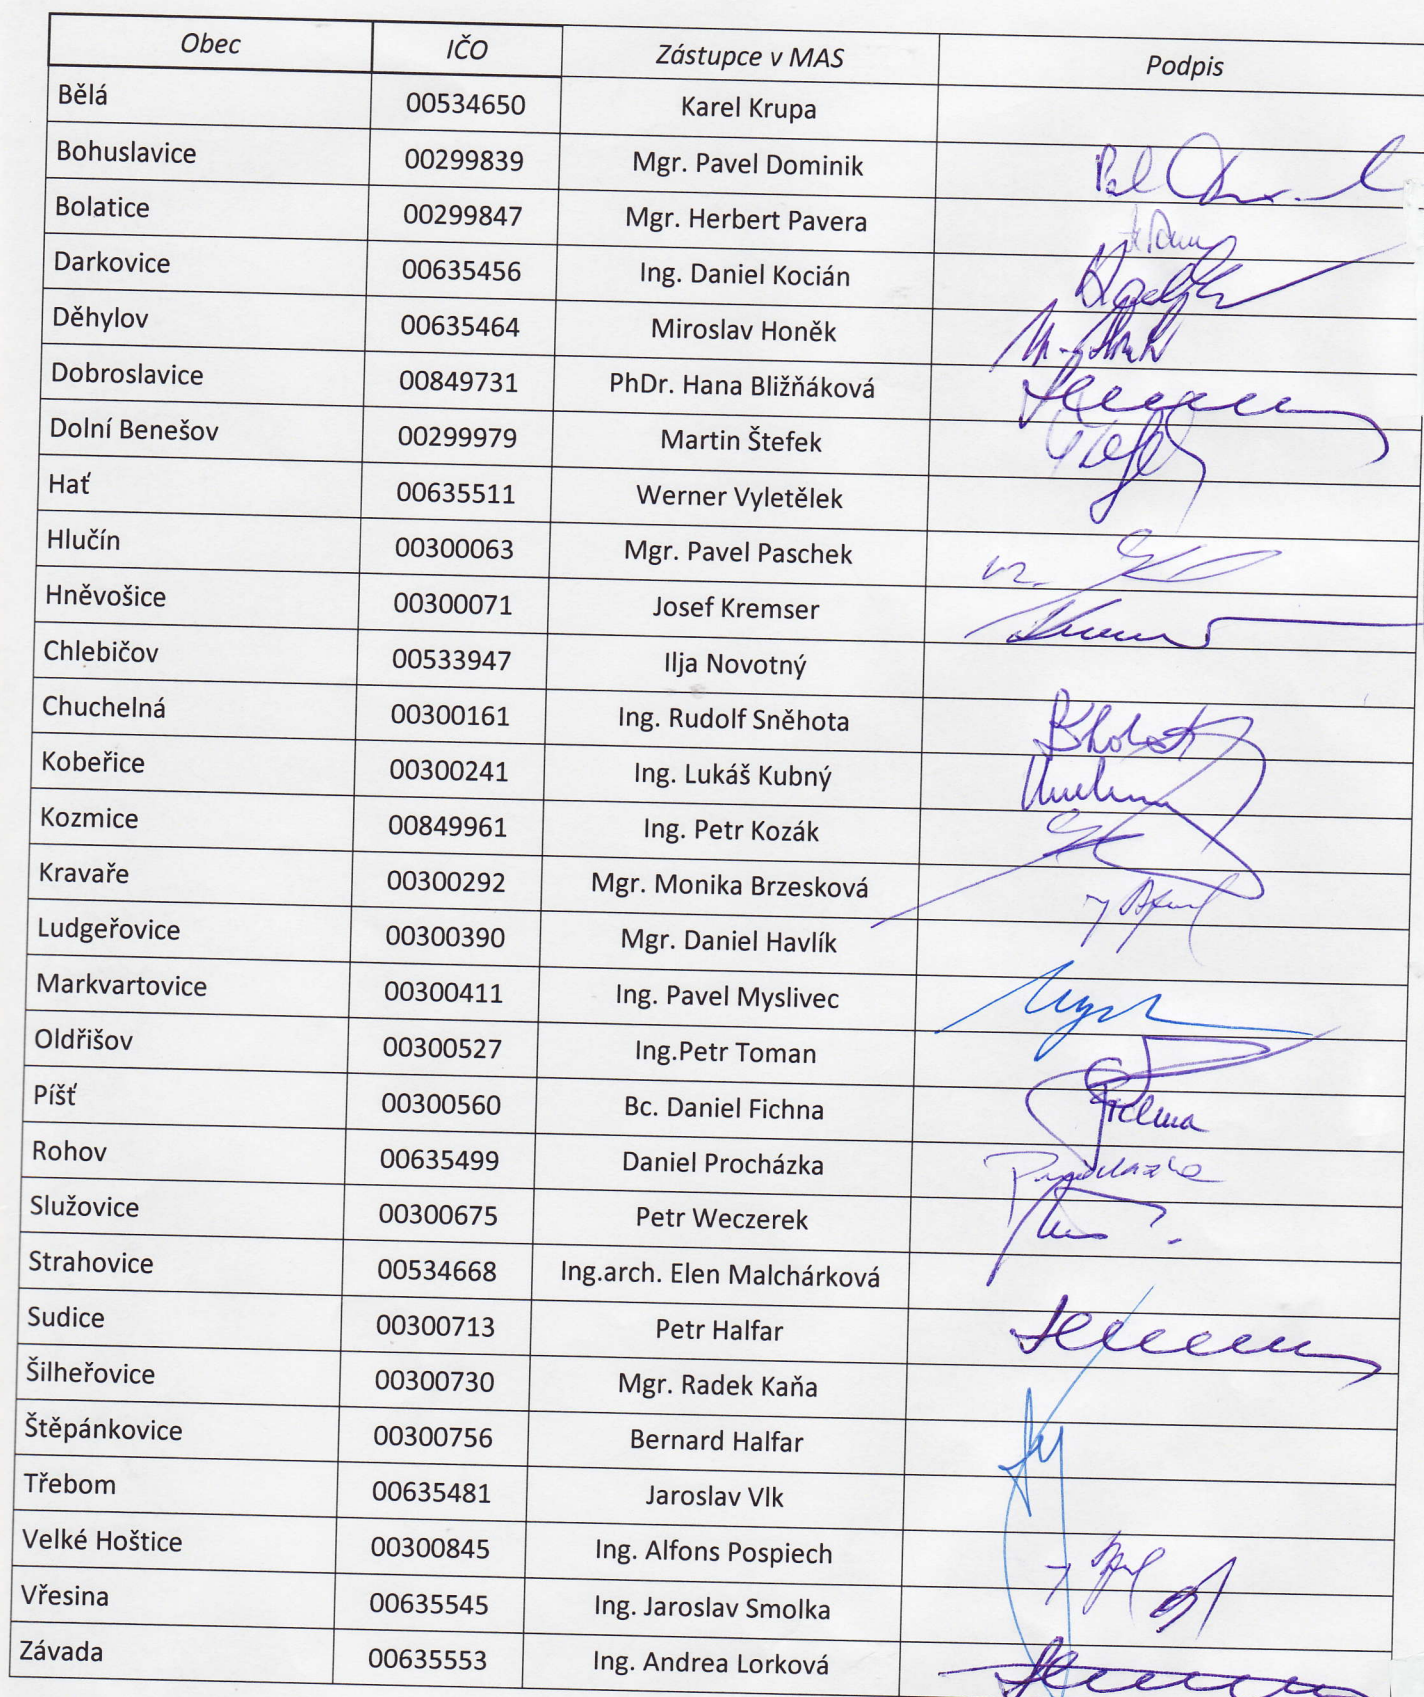 Obec IČO Zástupce v MAS Podpis
Bělá 00534650 Karel Krupa
Bohuslavice 00299839 Mgr. Pavel Dominik
Bolatice 00299847 Mgr. Herbert Pavera
Darkovice 00635456 Ing. Daniel Kocián
Děhylov 00635464 Miroslav Honěk
Dobroslavice 00849731 PhDr. Hana Bližňáková
Dolní Benešov 00299979 Martin Štefek
Hať 00635511 Werner Vyletělek
Hlučín 00300063 Mgr. Pavel Paschek
Hněvošice 00300071 Josef Kremser
Chlebičov 00533947 Ilja Novotný
Chuchelná 00300161 Ing. Rudolf Sněhota
Kobeřice 00300241 Ing. Lukáš Kubný
Kozmice 00849961 Ing. Petr Kozák
Kravaře 00300292 Mgr. Monika Brzesková
Ludgeřovice 00300390 Mgr. Daniel Havlík
Markvartovice 00300411 Ing. Pavel Myslivec
Oldřišov 00300527 Ing.Petr Toman
Píšť 00300560 Bc. Daniel Fichna
Rohov 00635499 Daniel Procházka
Služovice 00300675 Petr Weczerek
Strahovice 00534668 Ing.arch. Elen Malchárková
Sudice 00300713 Petr Halfar
Šilheřovice 00300730 Mgr. Radek Kaňa
Štěpánkovice 00300756 Bernard Halfar
Třebom 00635481 Jaroslav Vlk
Velké Hoštice 00300845 Ing. Alfons Pospiech
Vřesina 00635545 Ing. Jaroslav Smolka
Závada 00635553 Ing. Andrea Lorková